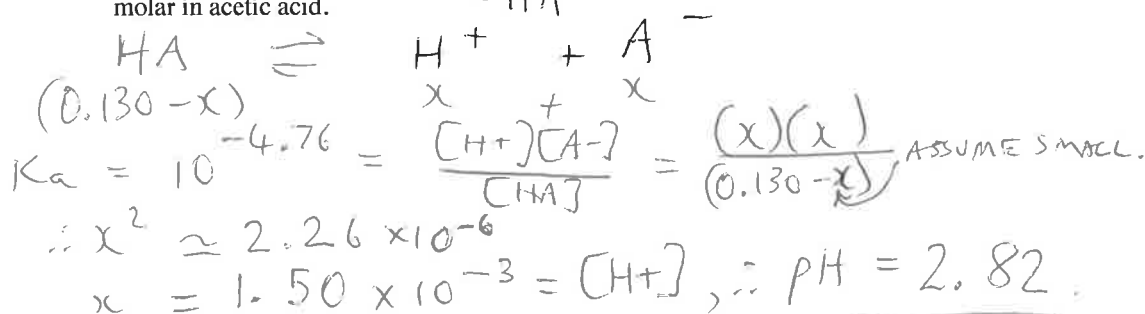 molar in acetic acid.
HA ⇌ H⁺ + A⁻
(0.130-x) x + x
Ka = 10^-4.76 = [H+][A-] / [HA] = (x)(x) / (0.130-x) ASSUME SMALL.
∴ x² ≃ 2.26 × 10^-6
x = 1.50 × 10^-3 = [H+], ∴ pH = 2.82.